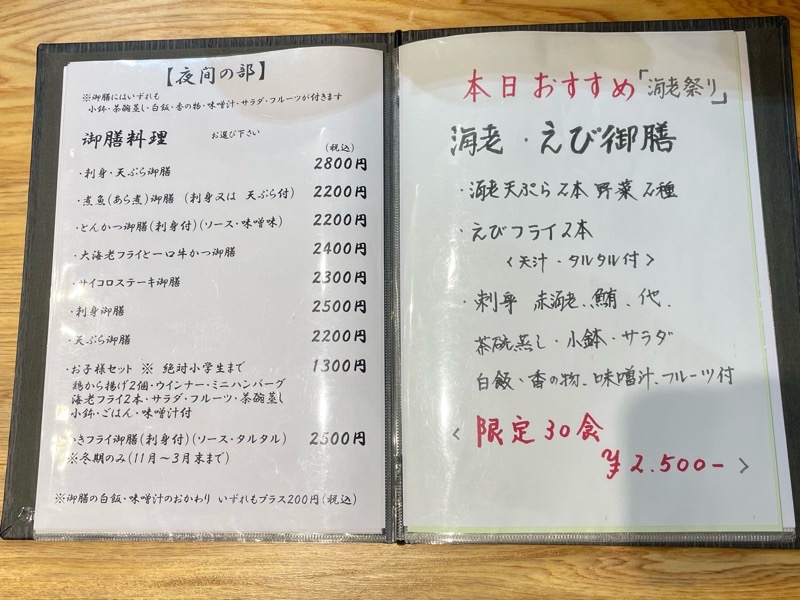 【夜間の部】
※御膳にはいずれも
小鉢・茶碗蒸し・白飯・香の物・味噌汁・サラダ・フルーツが付きます
御膳料理 お選び下さい
(税込)
・刺身・天ぷら御膳 2800円
・煮魚(あら煮)御膳 (刺身又は 天ぷら付) 2200円
・とんかつ御膳(刺身付)(ソース・味噌味) 2200円
・大海老フライと一口牛かつ御膳 2400円
・サイコロステーキ御膳 2300円
・刺身御膳 2500円
・天ぷら御膳 2200円
・お子様セット ※ 絶対小学生まで 1300円
鶏から揚げ2個・ウインナー・ミニハンバーグ
海老フライ2本・サラダ・フルーツ・茶碗蒸し
小鉢・ごはん・味噌汁付
きフライ御膳(刺身付)(ソース・タルタル) 2500円
※冬期のみ(11月〜3月末まで)
※御膳の白飯・味噌汁のおかわり いずれもプラス200円(税込)
本日おすすめ「海老祭り」
海老・えび御膳
・海老天ぷら2本 野菜2種
・えびフライ2本
<天汁・タルタル付>
・刺身 赤海老、鮪、他、
茶碗蒸し・小鉢・サラダ
白飯・香の物、味噌汁、フルーツ付
< 限定30食
¥2.500- >